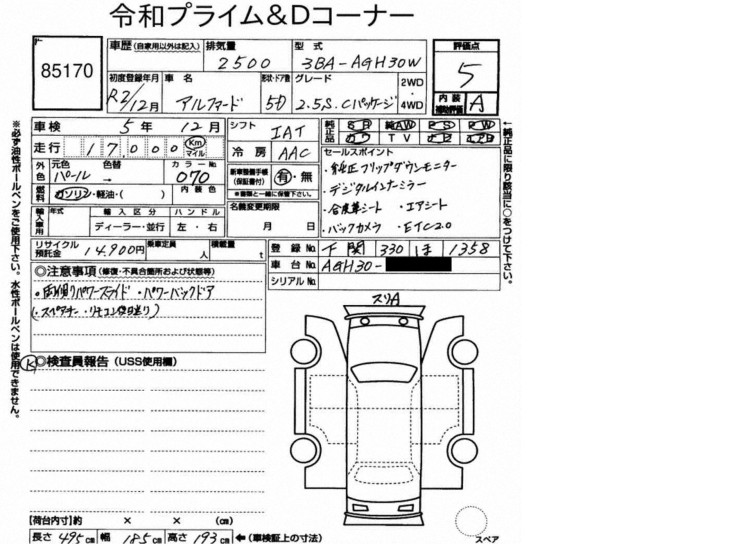 令和プライム&Dコーナー
85170
車歴(自家用以外は記入)
排気量 2500
型式 3BA-AGH30W
評価点 5
初度登録年月 R2/12月
車名 アルファード
形状・ドア数 5D
グレード 2.5S.Cパッケージ
2WD
4WD
内装補助評価 A
車検 5年 12月
シフト IAT
走行 17,000 Km マイル
冷房 AAC
外色 元色 パール
色替 →
カラーNo. 070
内装色
燃料 ガソリン・軽油・( )
新車整備手帳(保証書付) 有・無
※書類と一緒に保管下さい。
純正品 SR 純AW PS PW
カワ TV ナビ エアB
セールスポイント
・純正フリップダウンモニター
・デジタルインナーミラー
・合皮革シート ・エアシート
・バックカメラ ・ETC2.0
輸入車用 年式 輸入区分 ハンドル
ディーラー・並行 左・右
名義変更期限
月 日
リサイクル預託金 14,900円
乗車定員 人
積載量 t
登録No. 330 ほ 1358
車台No. AGH30-
シリアルNo.
◎注意事項(修復・不具合箇所および状態等)
・両側パワースライド ・パワーバックドア
◎検査員報告(USS使用欄)
スリA
※必ず油性ボールペンをご使用下さい。水性ボールペンは使用できません。
↑純正品に限り該当に○をつけて下さい。
[荷台内寸]約 × × (cm)
長さ 495cm 幅 185cm 高さ 193cm ←(車検証上の寸法)
スペア